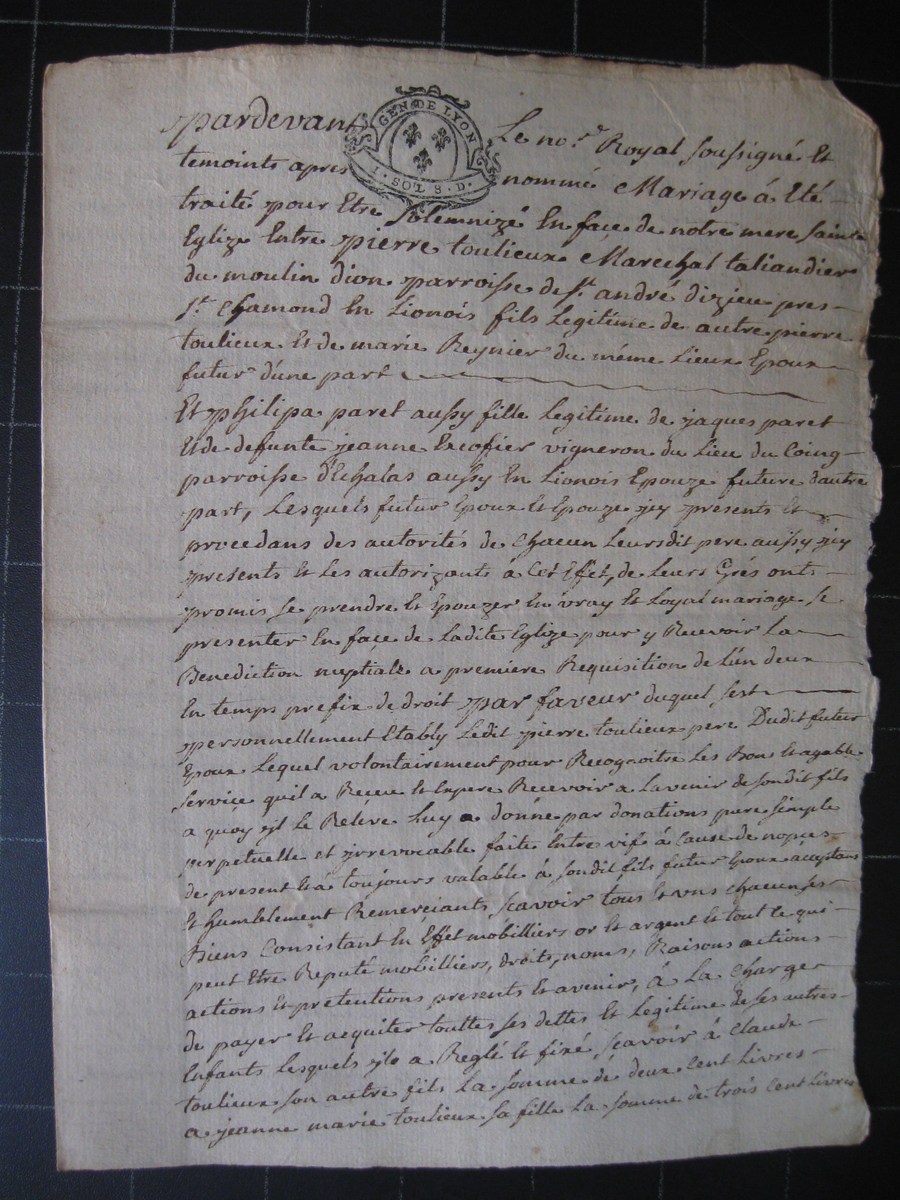 GEN DE LYON
1. SOLS 8. D.
pardevant Le no.re Royal soussigné Et
temoints apres nommé Mariage à Eté
traité pour Etre solemnizé En façe de notre mere sainte
Eglize Entre pierre toulieux Marechal taliandier
du moulin dion parroisse de st. andré dizieu pres
st. Chamond En Lionois fils Legitime de autre pierre
toulieux Et de marie Reynier du même Lieux Epoux
futur d'une part
Et philipa paret aussy fille Legitime de jaques paret
Et de defunte jeanne Excoffier vigneron du Lieu du Coing
parroisse d'Echalas aussy En Lionois Epouze future d'autre
part, Lesquels futur Epoux Et Epouze jcy presents Et
procedans des autorités de Chacun Leursdit pere aussy jcy
presents Et Les autorizants à Cet Effet, de Leurs Grés onts
promis se prendre Et Epouzer En vray Et Loyal mariage se
presenter En façe de Ladite Eglize pour y Recevoir La
Benediction nuptiale a premiere Requisition de L'un deux
En temps prefix de droit par faveur duquel s'est
personnellement Etably Ledit pierre toulieux pere Dudit futur
Epoux Lequel volontairement pour Recognoitre Les Bons Et agable
service quil a Reçeu Et Espere Recevoir a Lavenir de sondit fils
a quoy jl Le Releve Luy a donné par donations pure simple
perpetuelle et jrrevocable faite Entre vifs à Cause de nopces
de present Et a toujours valable à sondit fils futur Epoux açeptans
Et humblement Remerçiants sçavoir tous Et uns chacun ses
Biens Consistant En Effet mobilliers or Et argent Et tout Ce qui
peut Etre Reputé mobilliers, droits, noms, Raisons actions
actions Et pretentions presents Et avenirs, à La Charge
de payer Et acquiter touttes ses dettes Et Legitime de ses autres
Enfants Lesquels jl a Reglé Et fixé, sçavoir à Claude
toulieux son autre fils La somme de deux Cent Livres
a jeanne marie toulieux sa fille La somme de trois Cent Livres